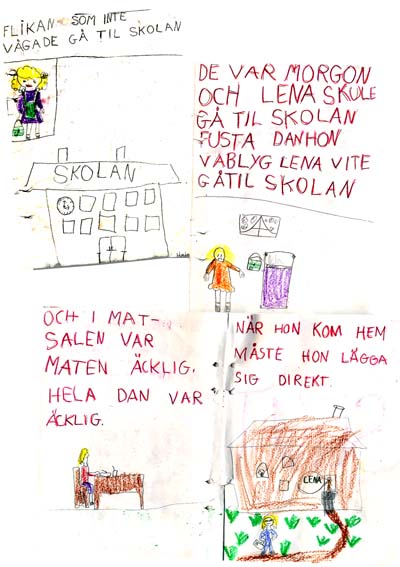 FLIKAN SOM INTE
VÅGADE GÅ TIL SKOLAN
SKOLAN
DE VAR MORGON
OCH LENA SKULE
GÅ TIL SKOLAN
FUSTA DANHON
VABLYG LENA VITE
GÅTIL SKOLAN
OCH I MAT-
SALEN VAR
MATEN ÄCKLIG.
HELA DAN VAR
ÄCKLIG.
NÄR HON KOM HEM
MÅSTE HON LÄGGA
SIG DIREKT.
LENA